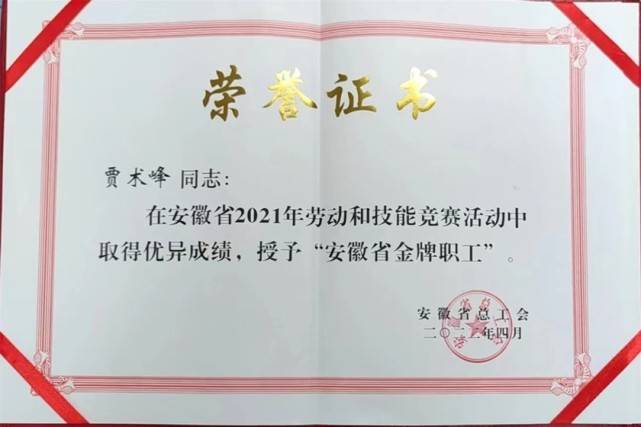 荣誉证书
贾术峰 同志：
在安徽省2021年劳动和技能竞赛活动中
取得优异成绩，授予“安徽省金牌职工”。
安徽省总工会
二〇二二年四月